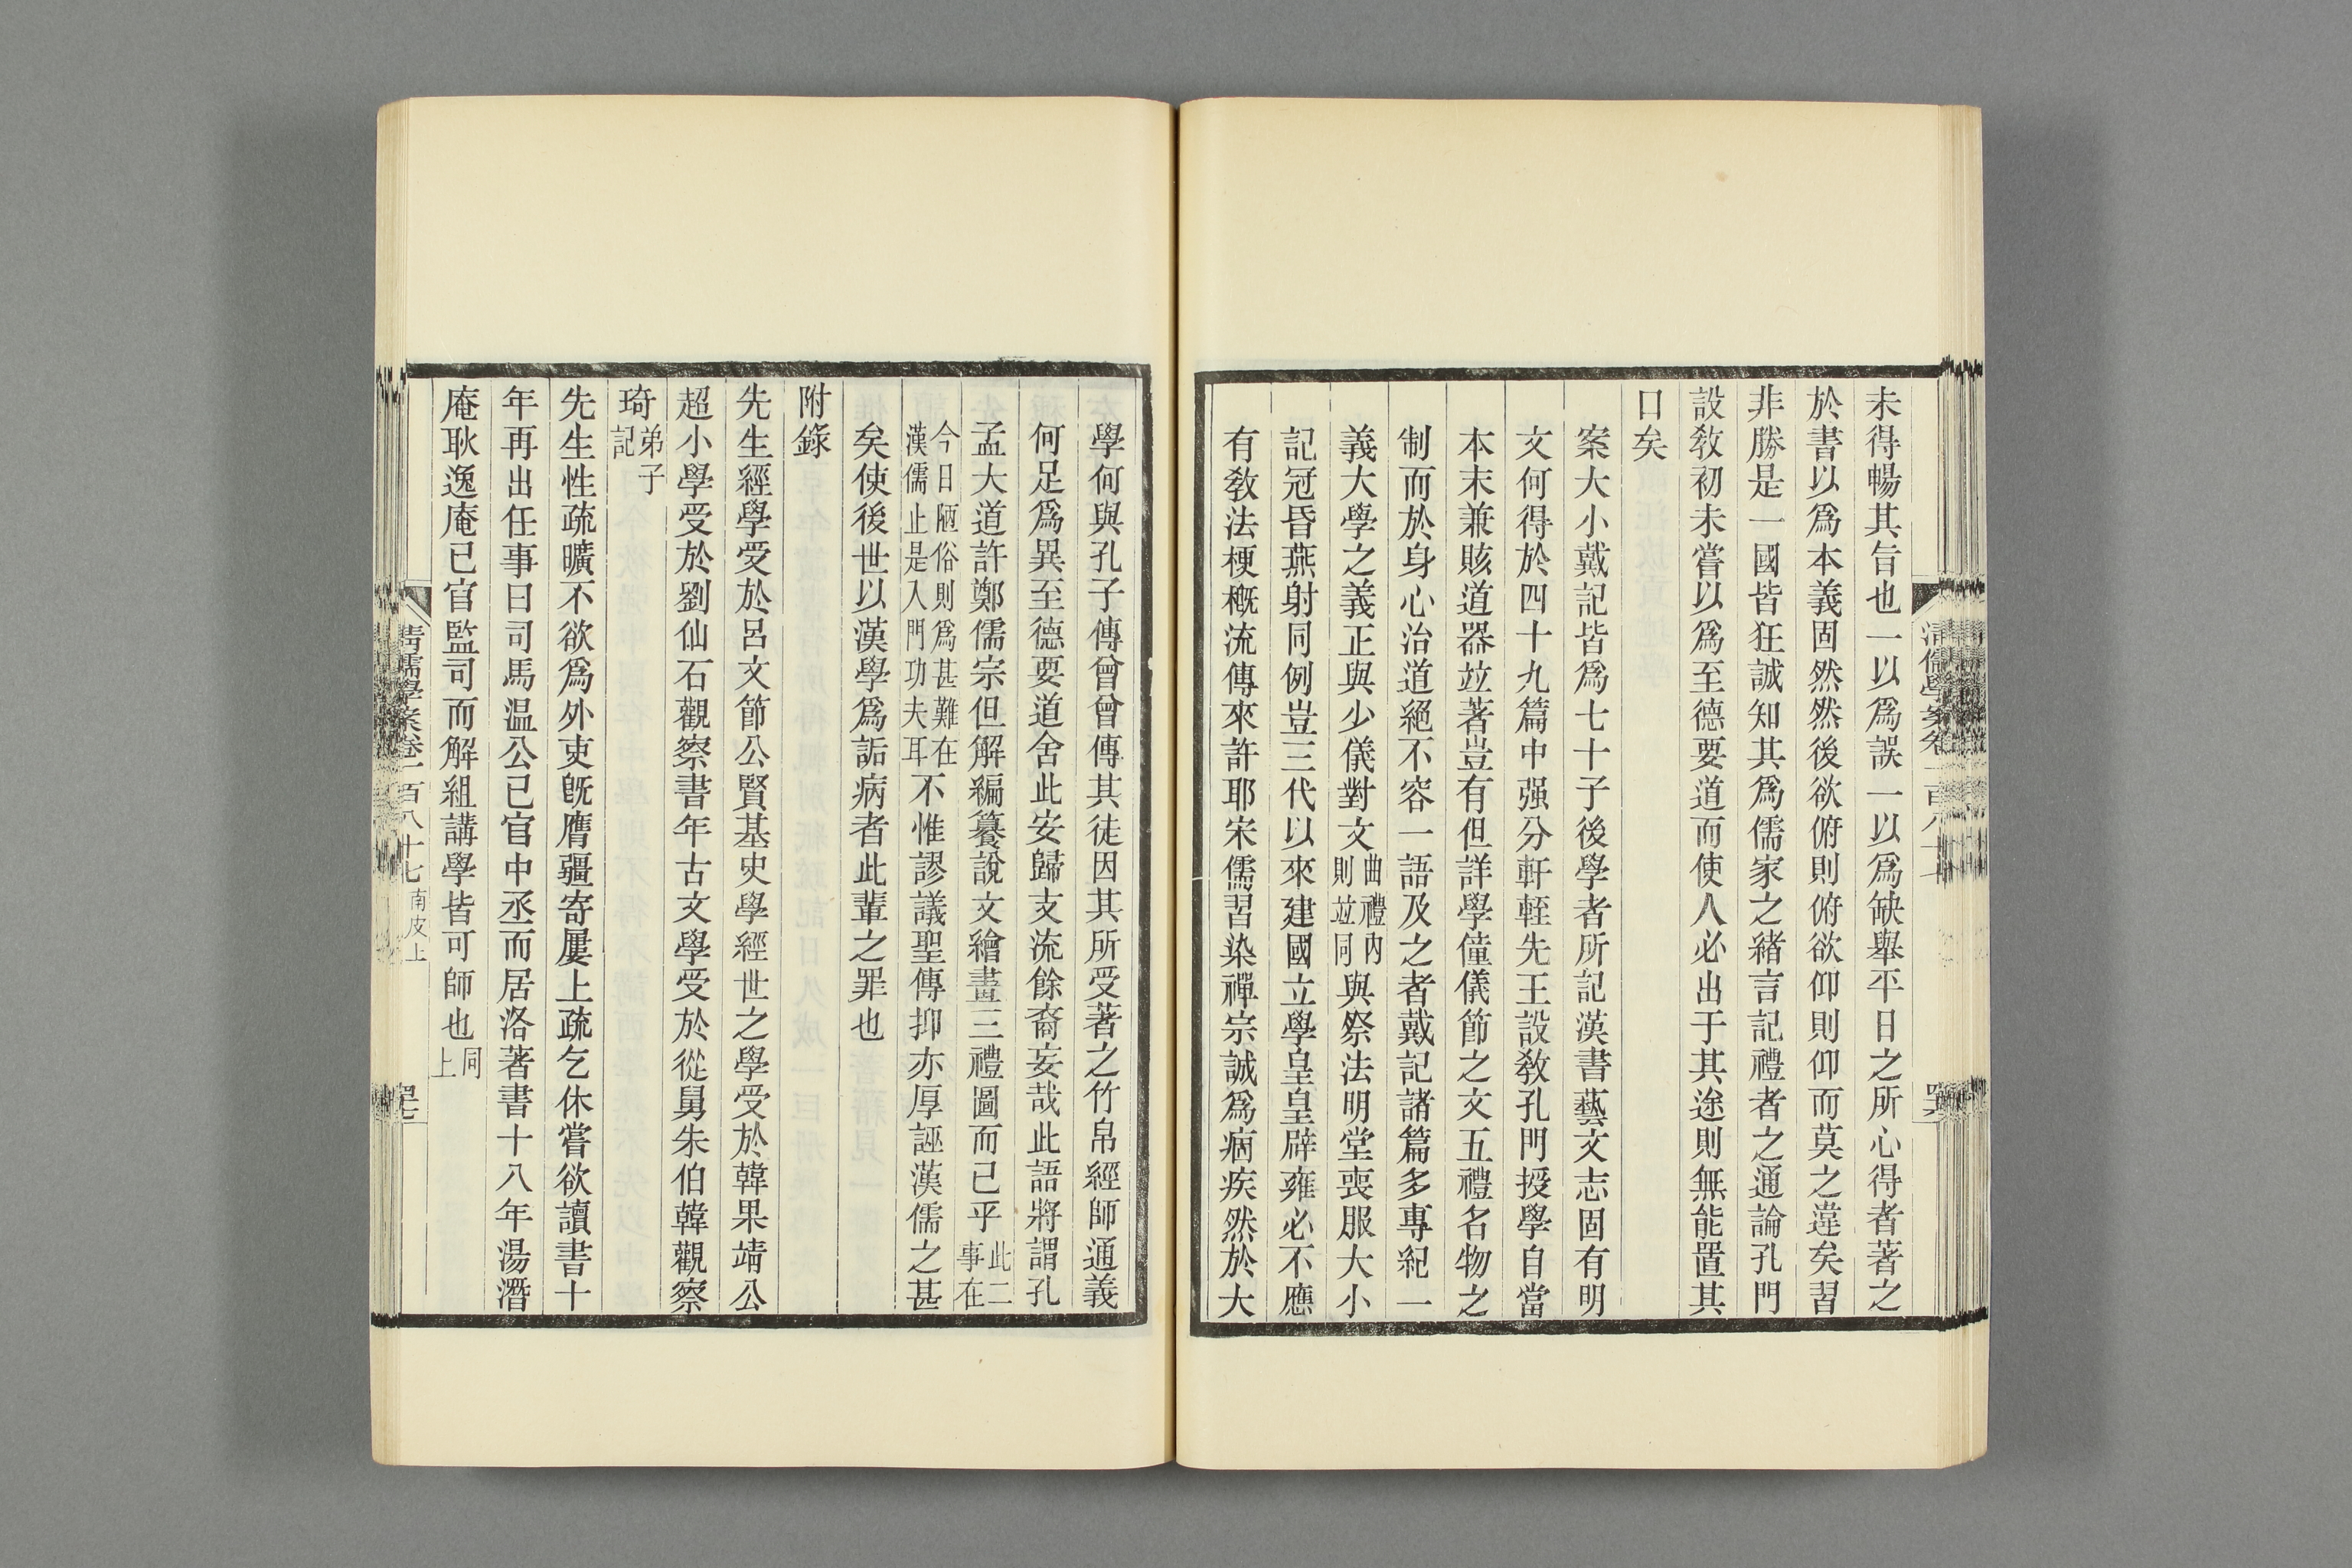 未得暢其旨也一以爲誤一以爲缺舉平日之所心得者著之
於書以爲本義固然然後欲俯則俯欲仰則仰而莫之違矣習
非勝是一國皆狂誠知其爲儒家之緒言記禮者之通論孔門
設敎初未嘗以爲至德要道而使人必出于其途則無能置其
口矣
案大小戴記皆爲七十子後學者所記漢書藝文志固有明
文何得於四十九篇中强分軒輊先王設敎孔門授學自當
本末兼賅道器竝著豈有但詳學僮儀節之文五禮名物之
制而於身心治道絕不容一語及之者戴記諸篇多專紀一
義大學之義正與少儀對文曲禮內則竝同與祭法明堂喪服大小
記冠昏燕射同例豈三代以來建國立學皇皇辟雍必不應
有敎法梗槪流傳來許耶宋儒習染禪宗誠爲痼疾然於大
學何與孔子傳曾曾傳其徒因其所受著之竹帛經師通義
何足爲異至德要道舍此安歸支流餘裔妄哉此語將謂孔
孟大道許鄭儒宗但解編纂說文繪畫三禮圖而已乎此二事在
今日陋俗則爲甚難在漢儒止是入門功夫耳不惟謬議聖傳抑亦厚誣漢儒之甚
矣使後世以漢學爲詬病者此輩之罪也
附錄
先生經學受於呂文節公賢基史學經世之學受於韓果靖公
超小學受於劉仙石觀察書年古文學受於從舅朱伯韓觀察
琦弟子記
先生性疏曠不欲爲外吏旣膺疆寄屢上疏乞休嘗欲讀書十
年再出任事曰司馬温公已官中丞而居洛著書十八年湯潛
庵耿逸庵已官監司而解組講學皆可師也同上
清儒學案卷一百八十七南皮上